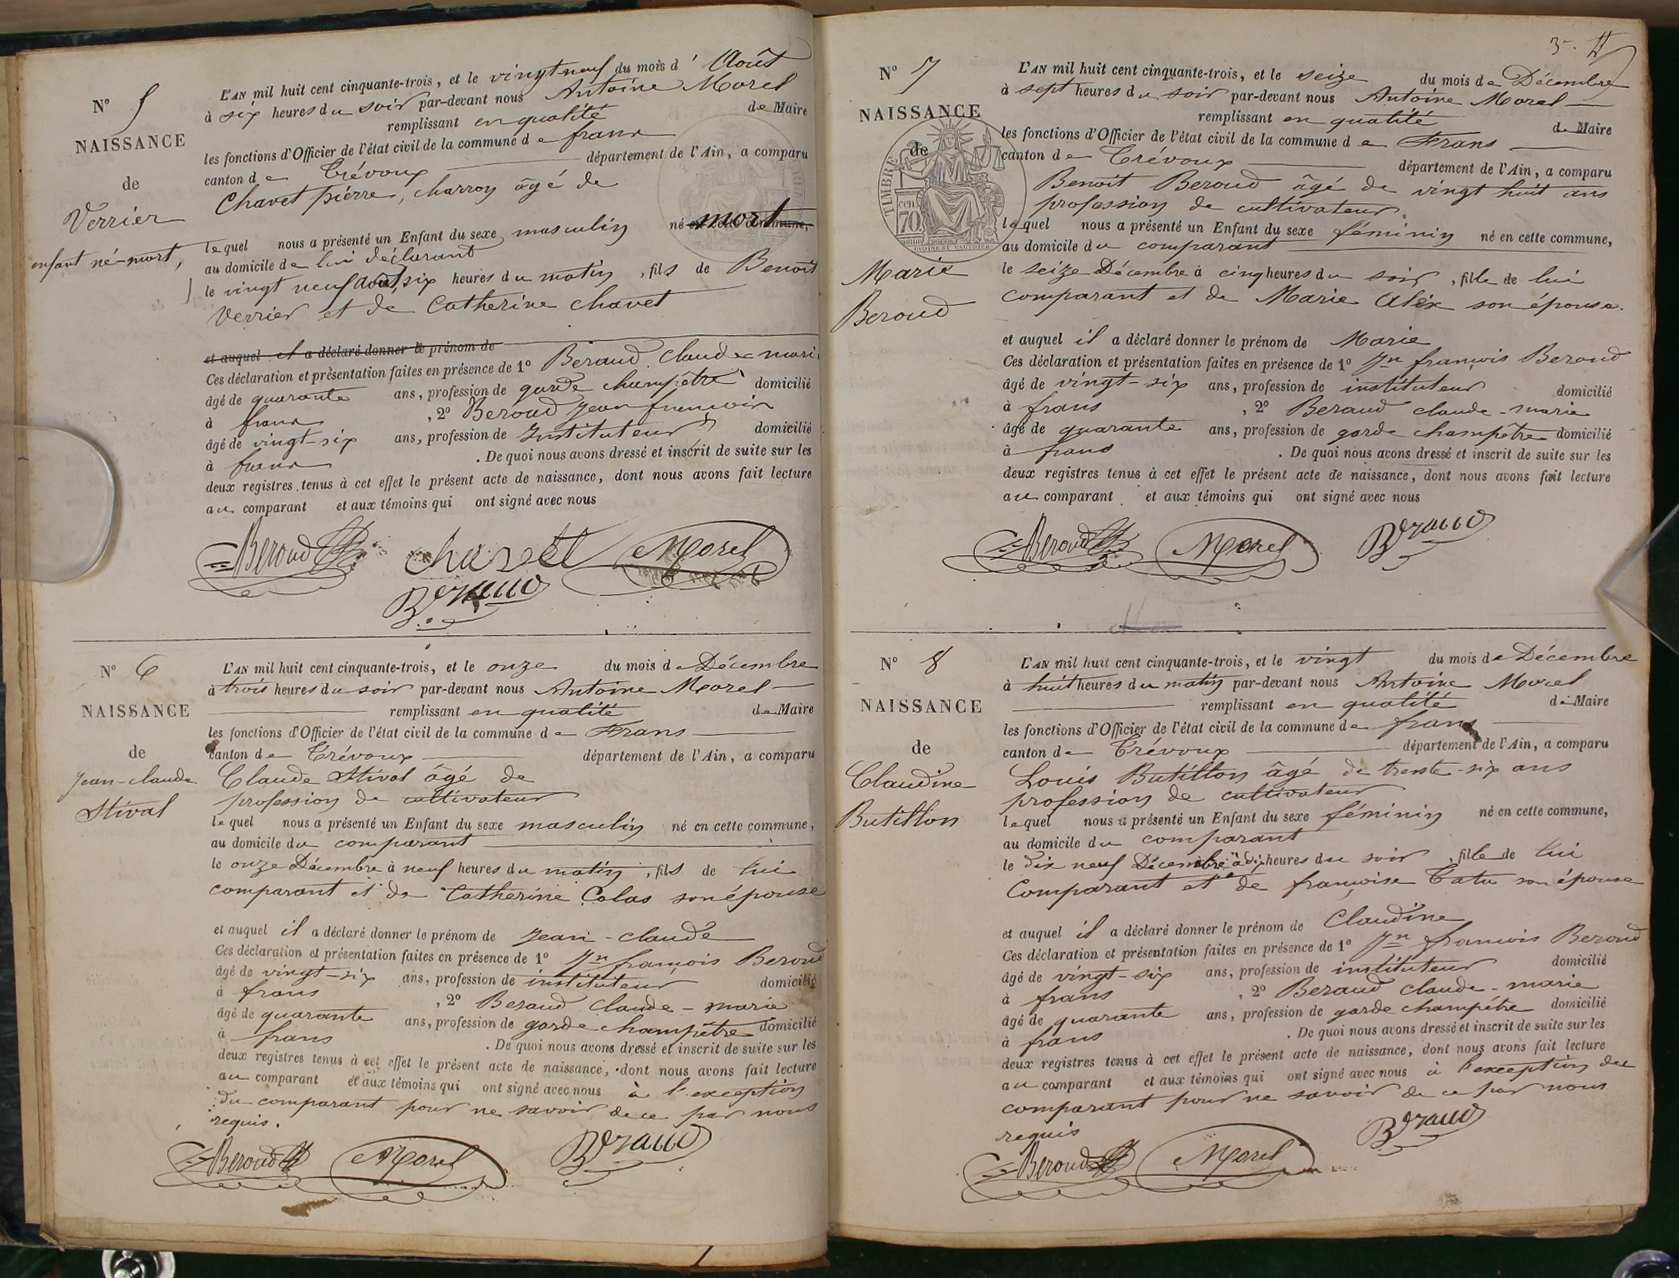 N° 5
NAISSANCE
de
Verrier
enfant né-mort,
L'AN mil huit cent cinquante-trois, et le vingt neuf du mois d' Août
à six heures du soir par-devant nous Antoine Morel
remplissant en qualité de Maire
les fonctions d'Officier de l'état civil de la commune de frans
canton de Trévoux département de l'Ain, a comparu
Chavet pierre, charron âgé de
lequel nous a présenté un Enfant du sexe masculin né mort
au domicile de lui déclarant
le vingt neuf août six heures du matin, fils de Benoit
Verrier et de Catherine Chavet
et auquel il a déclaré donner le prénom de
Ces déclaration et présentation faites en présence de 1° Beraud Claude marie
âgé de quarante ans, profession de garde champêtre domicilié
à frans , 2° Beroud Jean françois
âgé de vingt-six ans, profession de Instituteur domicilié
à frans . De quoi nous avons dressé et inscrit de suite sur les
deux registres tenus à cet effet le présent acte de naissance, dont nous avons fait lecture
au comparant et aux témoins qui ont signé avec nous
Beroud Chavet Morel
Beraud
N° 6
NAISSANCE
de
Jean-claude
Stival
L'AN mil huit cent cinquante-trois, et le onze du mois de Décembre
à trois heures du soir par-devant nous Antoine Morel
remplissant en qualité de Maire
les fonctions d'Officier de l'état civil de la commune de Frans
canton de Trévoux département de l'Ain, a comparu
Claude Stival âgé de
profession de cultivateur
lequel nous a présenté un Enfant du sexe masculin né en cette commune,
au domicile du comparant
le onze Décembre à neuf heures du matin, fils de lui
comparant et de Catherine Colas son épouse
et auquel il a déclaré donner le prénom de Jean-claude
Ces déclaration et présentation faites en présence de 1° Jn françois Beroud
âgé de vingt-six ans, profession de instituteur domicilié
à frans , 2° Beraud Claude-marie
âgé de quarante ans, profession de garde champêtre domicilié
à frans . De quoi nous avons dressé et inscrit de suite sur les
deux registres tenus à cet effet le présent acte de naissance, dont nous avons fait lecture
au comparant et aux témoins qui ont signé avec nous à l'exception
du comparant pour ne savoir de ce par nous
requis.
Beroud Morel Beraud
3-
N° 7
NAISSANCE
de
TIMBRE
70
Marie
Beroud
L'AN mil huit cent cinquante-trois, et le seize du mois de Décembre
à sept heures du soir par-devant nous Antoine Morel
remplissant en qualité de Maire
les fonctions d'Officier de l'état civil de la commune de Frans
canton de Trévoux département de l'Ain, a comparu
Benoit Beroud âgé de vingt huit ans
profession de cultivateur
lequel nous a présenté un Enfant du sexe féminin né en cette commune,
au domicile du comparant
le seize Décembre à cinq heures du soir, fille de lui
comparant et de Marie Alex son épouse.
et auquel il a déclaré donner le prénom de Marie
Ces déclaration et présentation faites en présence de 1° Jn françois Beroud
âgé de vingt-six ans, profession de instituteur domicilié
à frans , 2° Beraud claude-marie
âgé de quarante ans, profession de garde champêtre domicilié
à frans . De quoi nous avons dressé et inscrit de suite sur les
deux registres tenus à cet effet le présent acte de naissance, dont nous avons fait lecture
au comparant et aux témoins qui ont signé avec nous
Beroud Morel Beraud
N° 8
NAISSANCE
de
Claudine
Butillon
L'AN mil huit cent cinquante-trois, et le vingt du mois de Décembre
à huit heures du matin par-devant nous Antoine Morel
remplissant en qualité de Maire
les fonctions d'Officier de l'état civil de la commune de frans
canton de Trévoux département de l'Ain, a comparu
Louis Butillon âgé de trente-six ans
profession de cultivateur
lequel nous a présenté un Enfant du sexe féminin né en cette commune,
au domicile du comparant
le dix neuf Décembre à heures du soir, fille de lui
Comparant et de françoise Tatu son épouse
et auquel il a déclaré donner le prénom de Claudine
Ces déclaration et présentation faites en présence de 1° Jn françois Beroud
âgé de vingt-six ans, profession de instituteur domicilié
à frans , 2° Beraud claude-marie
âgé de quarante ans, profession de garde champêtre domicilié
à frans . De quoi nous avons dressé et inscrit de suite sur les
deux registres tenus à cet effet le présent acte de naissance, dont nous avons fait lecture
au comparant et aux témoins qui ont signé avec nous à l'exception du
comparant pour ne savoir de ce par nous
requis
Beroud Morel Beraud